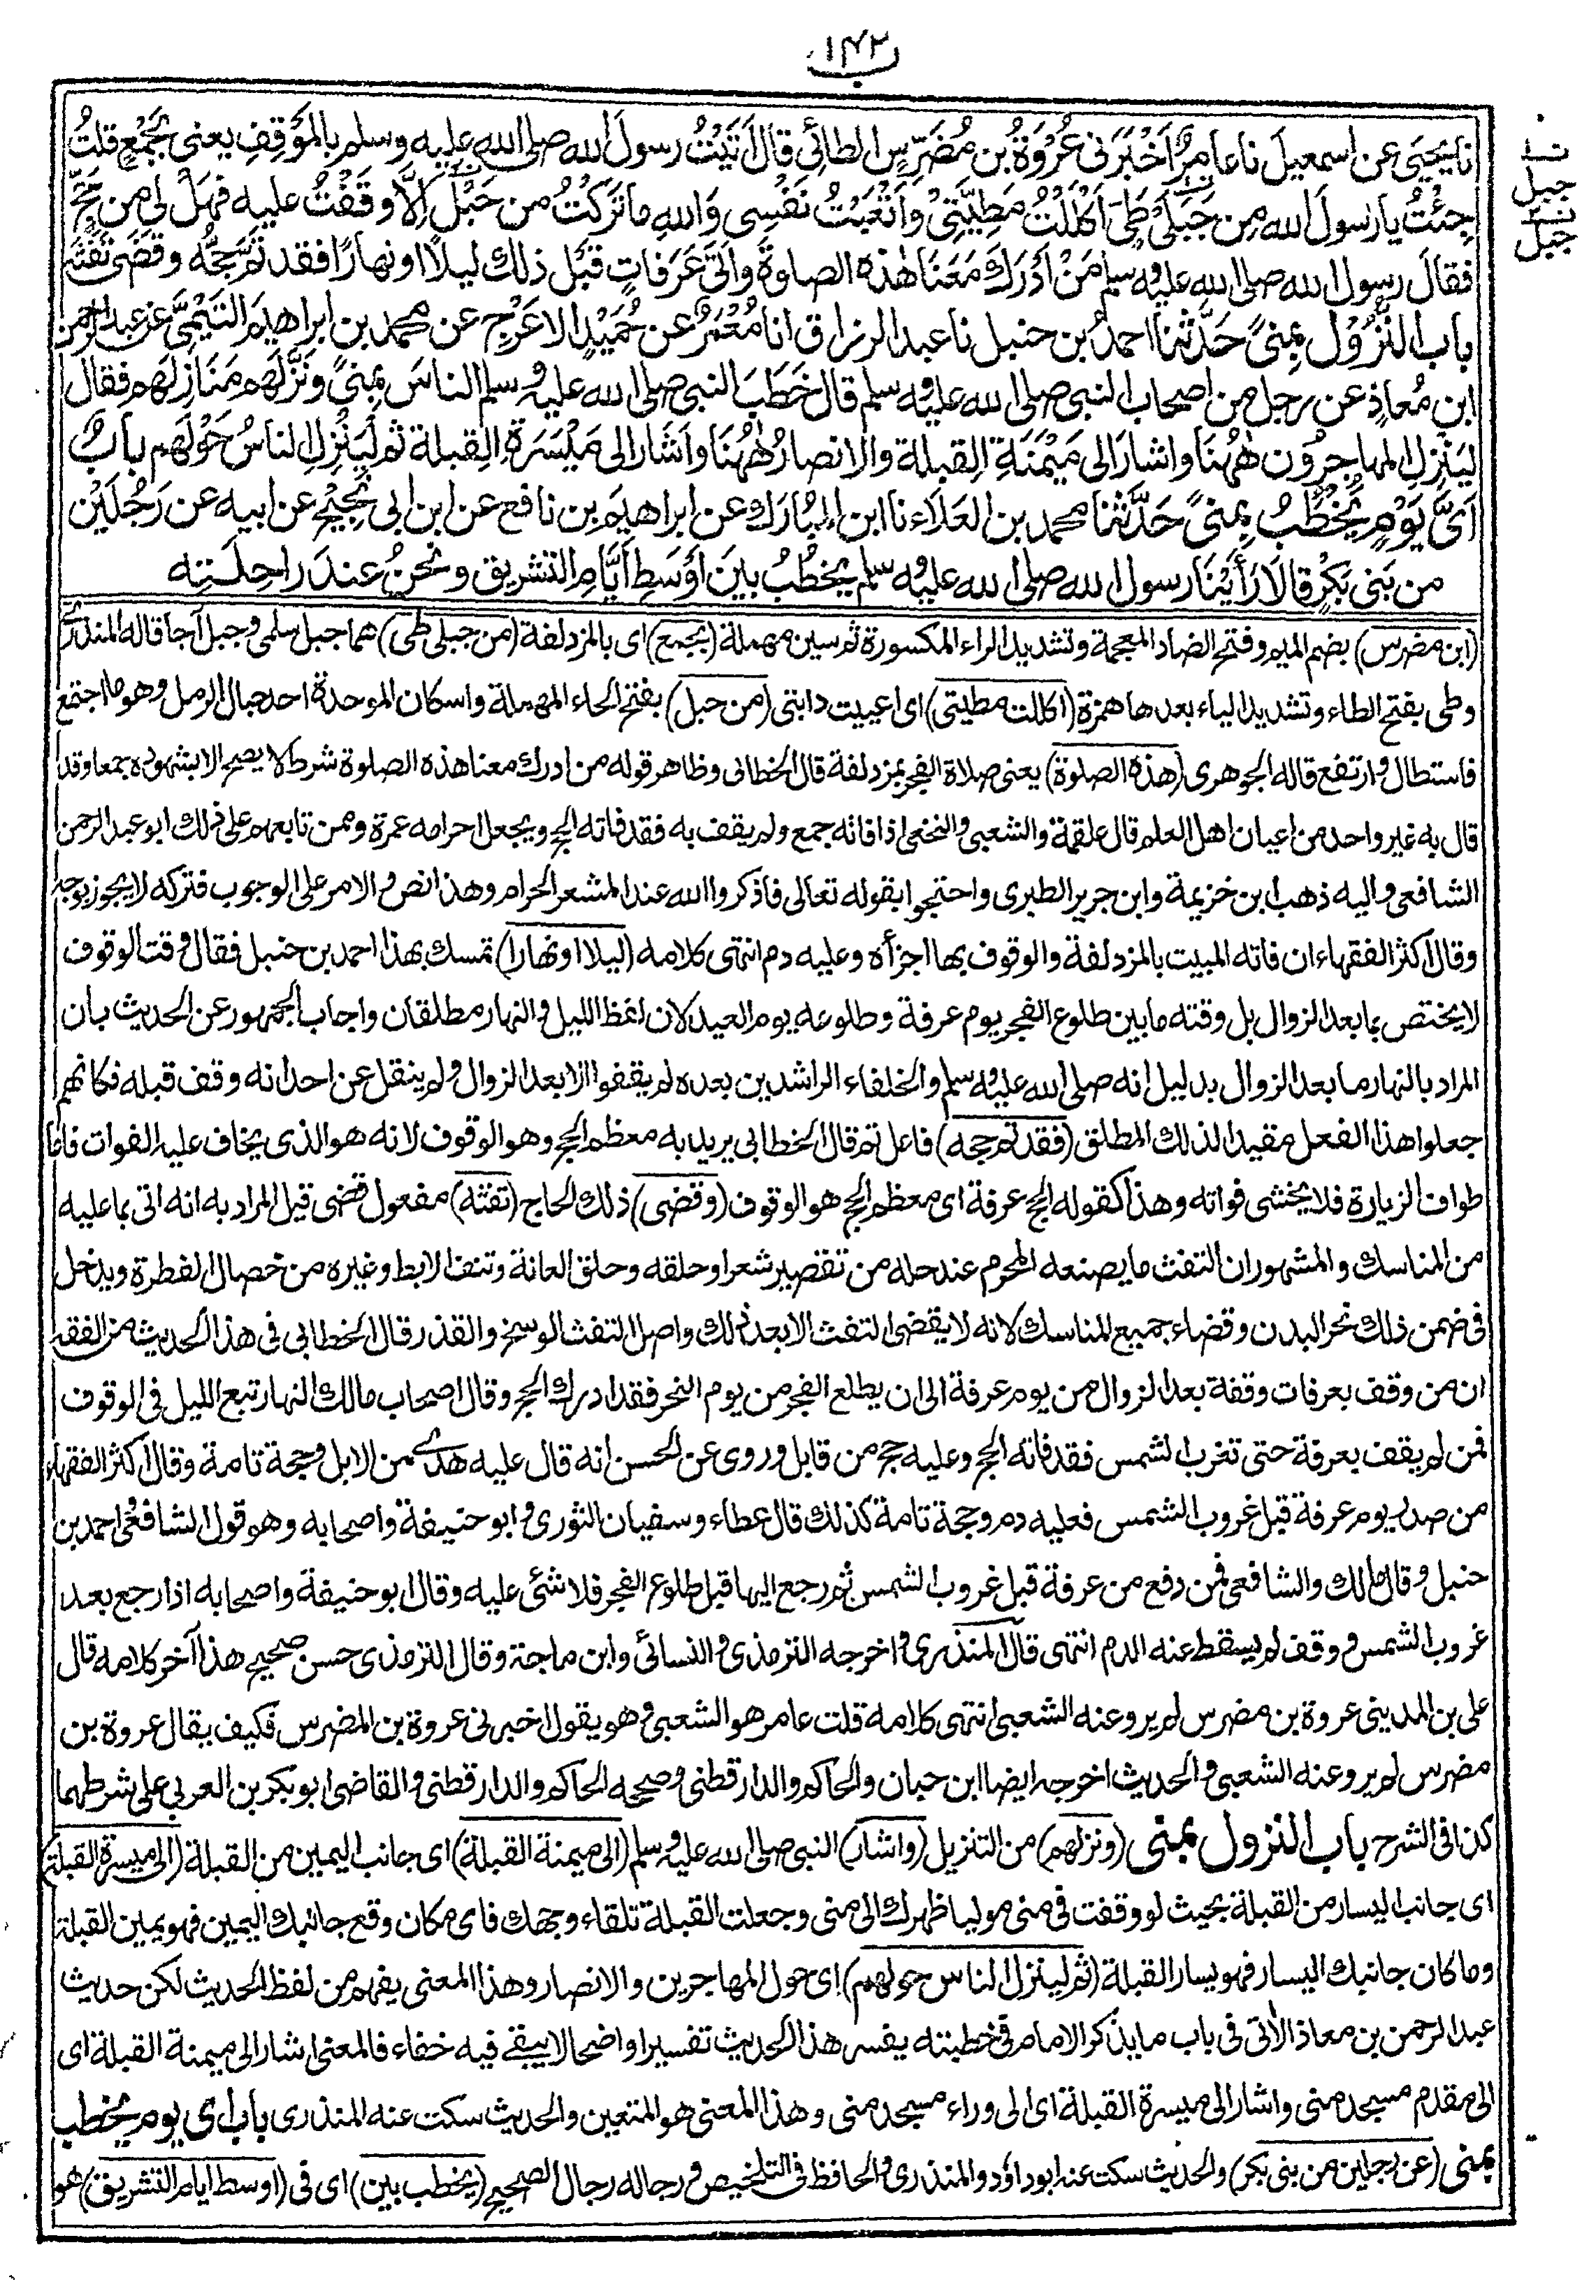 ١٤٢
نا يحيى عن اسمعيل نا عامرٌ اَخْبَرَنى عُرْوَةُ بن مُضَرِّسٍ الطائى قال اَتَيْتُ رسولَ الله صلى الله عليه وسلم بالمَوْقِفِ يعنى بِجَمْعٍ قلتُ
جِئْتُ يا رسولَ الله مِن جَبَلَىْ طَىّءٍ اَكْلَلْتُ مَطِيَّتِىْ واَتْعَبْتُ نَفْسِى وَاللهِ ما تَرَكْتُ من حَبْلٍ اِلَّا وَقَفْتُ عليه فهَلْ لى مِن حَجٍّ
نـ
جبل
نـ
جبل
فقالَ رسول الله صلى الله عليه وسلم مَنْ اَدْرَكَ مَعَنَا هٰذه الصلوةَ وَاَتٰى عَرَفاتٍ قَبْلَ ذلك ليلًا او نهارًا فقد تم حَجُّه وقَضٰى تَفَثَه
باب النُّزُوْل بِمِنىً حَدَّثَنا احمدُ بن حنبل نا عبد الرزاق انا مَعْمَرٌ عن حُمَيْدٍ الاعْرَجِ عن محمد بن ابراهيمَ التَيْمِىِّ عن عبد الرحمن
ابن مُعاذٍ عن رجلٍ من اصحاب النبى صلى الله عليه وسلم قال خَطَبَ النبى صلى الله عليه وسلم الناسَ بِمِنىً ونَزَّلَهم مَنَازِلَهم فقال
لِيَنْزِلِ المهاجِرُون هٰهُنَا واشارَ الى مَيْمَنَةِ القِبلة والانصارُ هٰهُنَا واَشَارَ الى مَيْسَرَةِ القِبلة ثم لْيَنْزِلِ الناسُ حَوْلَهم بابٌ
اَىَّ يَوْمٍ يَخْطُبُ بِمِنىً حَدَّثَنا محمد بن العَلَاء نا ابن المُبَارَك عن ابراهيمَ بن نافع عن ابن ابى نَجِيْحٍ عن ابيه عن رَجُلَيْن
من بَنى بَكْرٍ قالا رَأَيْنَا رسول الله صلى الله عليه وسلم يخطُبُ بينَ اَوْسَطِ اَيَّامِ التشريق ونحنُ عندَ راحِلَتِه
(ابن مضرس) بضم الميم وفتح الضاد المعجمة وتشديد الراء المكسورة ثم سين مهملة (بجمع) اى بالمزدلفة (من جبلى طى) هما جبل سلمى وجبل آجا قاله المنذرى
وطى بفتح الطاء وتشديد الياء بعدها همزة (اكللت مطيتى) اى اعييت دابتى (من حبل) بفتح الحاء المهملة واسكان الموحدة احد حبال الرمل وهو ما اجتمع
فاستطال وارتفع قاله الجوهرى (هذه الصلوة) يعنى صلاة الفجر بمزدلفة قال الخطابى وظاهر قوله من ادرك معنا هذه الصلوة شرط لا يصح الا بشهوده جمعا وقد
قال به غير واحد من اعيان اهل العلم قال علقمة والشعبى والنخعى اذا فاته جمع ولم يقف به فقد فاته الحج ويجعل احرامه عمرة وممن تابعهم على ذلك ابو عبد الرحمن
الشافعى واليه ذهب ابن خزيمة وابن جرير الطبرى واحتجوا بقوله تعالى فاذكروا الله عند المشعر الحرام وهذا نص والامر على الوجوب فتركه لا يجوز بوجه
وقال اكثر الفقهاء ان فاته المبيت بالمزدلفة والوقوف بها اجزأه وعليه دم انتهى كلامه (ليلا او نهارا) تمسك بهذا احمد بن حنبل فقال وقت الوقوف
لا يختص بما بعد الزوال بل وقته ما بين طلوع الفجر يوم عرفة وطلوعه يوم العيد لان لفظ الليل والنهار مطلقان واجاب الجمهور عن الحديث بان
المراد بالنهار ما بعد الزوال بدليل انه صلى الله عليه وسلم والخلفاء الراشدين بعده لم يقفوا الا بعد الزوال ولم ينقل عن احد انه وقف قبله فكانهم
جعلوا هذا الفعل مقيدا لذلك المطلق (فقد تم حجه) فاعل تم قال الخطابى يريد به معظم الحج وهو الوقوف لانه هو الذى يخاف عليه الفوات فاما
طواف الزيارة فلا يخشى فواته وهذا كقوله الحج عرفة اى معظم الحج هو الوقوف (وقضى) ذلك الحاج (تفثه) مفعول قضى قيل المراد به انه اتى بما عليه
من المناسك والمشهور ان التفث ما يصنعه المحرم عند حله من تقصير شعر او حلقه وحلق العانة ونتف الابط وغيره من خصال الفطرة ويدخل
فى ضمن ذلك نحر البدن وقضاء جميع المناسك لانه لا يقضى التفث الا بعد ذلك واصل التفث الوسخ والقذر قال الخطابى فى هذا الحديث من الفقه
ان من وقف بعرفات وقفة بعد الزوال من يوم عرفة الى ان يطلع الفجر من يوم النحر فقد ادرك الحج وقال اصحاب مالك النهار تبع الليل فى الوقوف
فمن لم يقف بعرفة حتى تغرب الشمس فقد فاته الحج وعليه حج من قابل وروى عن الحسن انه قال عليه هدى من الابل وحجة تامة وقال اكثر الفقهاء
من صدر يوم عرفة قبل غروب الشمس فعليه دم وحجة تامة كذلك قال عطاء وسفيان الثورى وابو حنيفة واصحابه وهو قول الشافعى واحمد بن
حنبل وقال مالك والشافعى فمن دفع من عرفة قبل غروب الشمس ثم رجع اليها قبل طلوع الفجر فلا شئ عليه وقال ابو حنيفة واصحابه اذا رجع بعد
غروب الشمس ووقف لم يسقط عنه الدم انتهى قال المنذرى واخرجه الترمذى والنسائى وابن ماجة وقال الترمذى حسن صحيح هذا آخر كلامه قال
على بن المدينى عروة بن مضرس لم يرو عنه الشعبى انتهى كلامه قلت عامر هو الشعبى وهو يقول اخبرنى عروة بن المضرس فكيف يقال عروة بن
مضرس لم يرو عنه الشعبى والحديث اخرجه ايضا ابن حبان والحاكم والدارقطنى وصححه الحاكم والدارقطنى والقاضى ابو بكر بن العربى على شرطهما
كذا فى الشرح باب النزول بمنى (ونزلهم) من التنزيل (واشار) النبى صلى الله عليه وسلم (الى ميمنة القبلة) اى جانب اليمين من القبلة (الى ميسرة القبلة)
اى جانب اليسار من القبلة بحيث لو وقفت فى منى موليا ظهرك الى منى وجعلت القبلة تلقاء وجهك فاى مكان وقع جانبك اليمين فهو يمين القبلة
وما كان جانبك اليسار فهو يسار القبلة (ثم لينزل الناس حولهم) اى حول المهاجرين والانصار وهذا المعنى يفهم من لفظ الحديث لكن حديث
عبد الرحمن بن معاذ الآتى فى باب ما يذكر الامام فى خطبته يفسر هذا الحديث تفسيرا واضحا لا يبقى فيه خفاء فالمعنى اشار الى ميمنة القبلة اى
الى مقدم مسجد منى واشار الى ميسرة القبلة اى الى وراء مسجد منى وهذا المعنى هو المتعين والحديث سكت عنه المنذرى باب اى يوم يخطب
بمنى (عن رجلين من بنى بكر) والحديث سكت عنه ابو داؤد والمنذرى والحافظ فى التلخيص ورجاله رجال الصحيح (يخطب بين) اى فى (اوسط ايام التشريق) هو